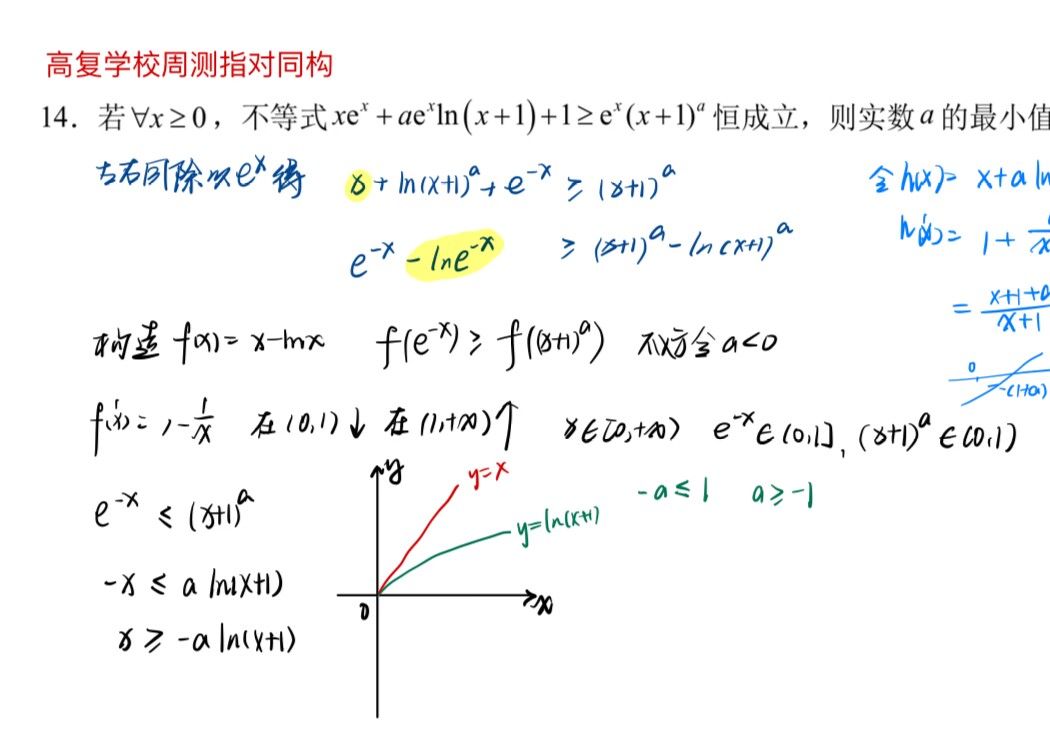 高复学校周测指对同构
14. 若∀x≥0，不等式xeˣ+aeˣln(x+1)+1≥eˣ(x+1)ᵃ恒成立，则实数a的最小值
左右同除以eˣ得 x+ln(x+1)ᵃ+e⁻ˣ≥(x+1)ᵃ
令h(x)= x+a ln
e⁻ˣ-lne⁻ˣ ≥(x+1)ᵃ-ln(x+1)ᵃ
h'(x)= 1+
= x+1+a/x+1
构造 f(x)=x-lnx f(e⁻ˣ)≥f((x+1)ᵃ) 不妨令a<0
0 -(1+a)
f'(x)=1-1/x 在(0,1)↓ 在(1,+∞)↑ x∈[0,+∞) e⁻ˣ∈(0,1], (x+1)ᵃ∈(0,1)
e⁻ˣ≤(x+1)ᵃ
y y=x
-a≤1 a≥-1
y=ln(x+1)
-x≤a ln(x+1)
0 x
x≥-a ln(x+1)